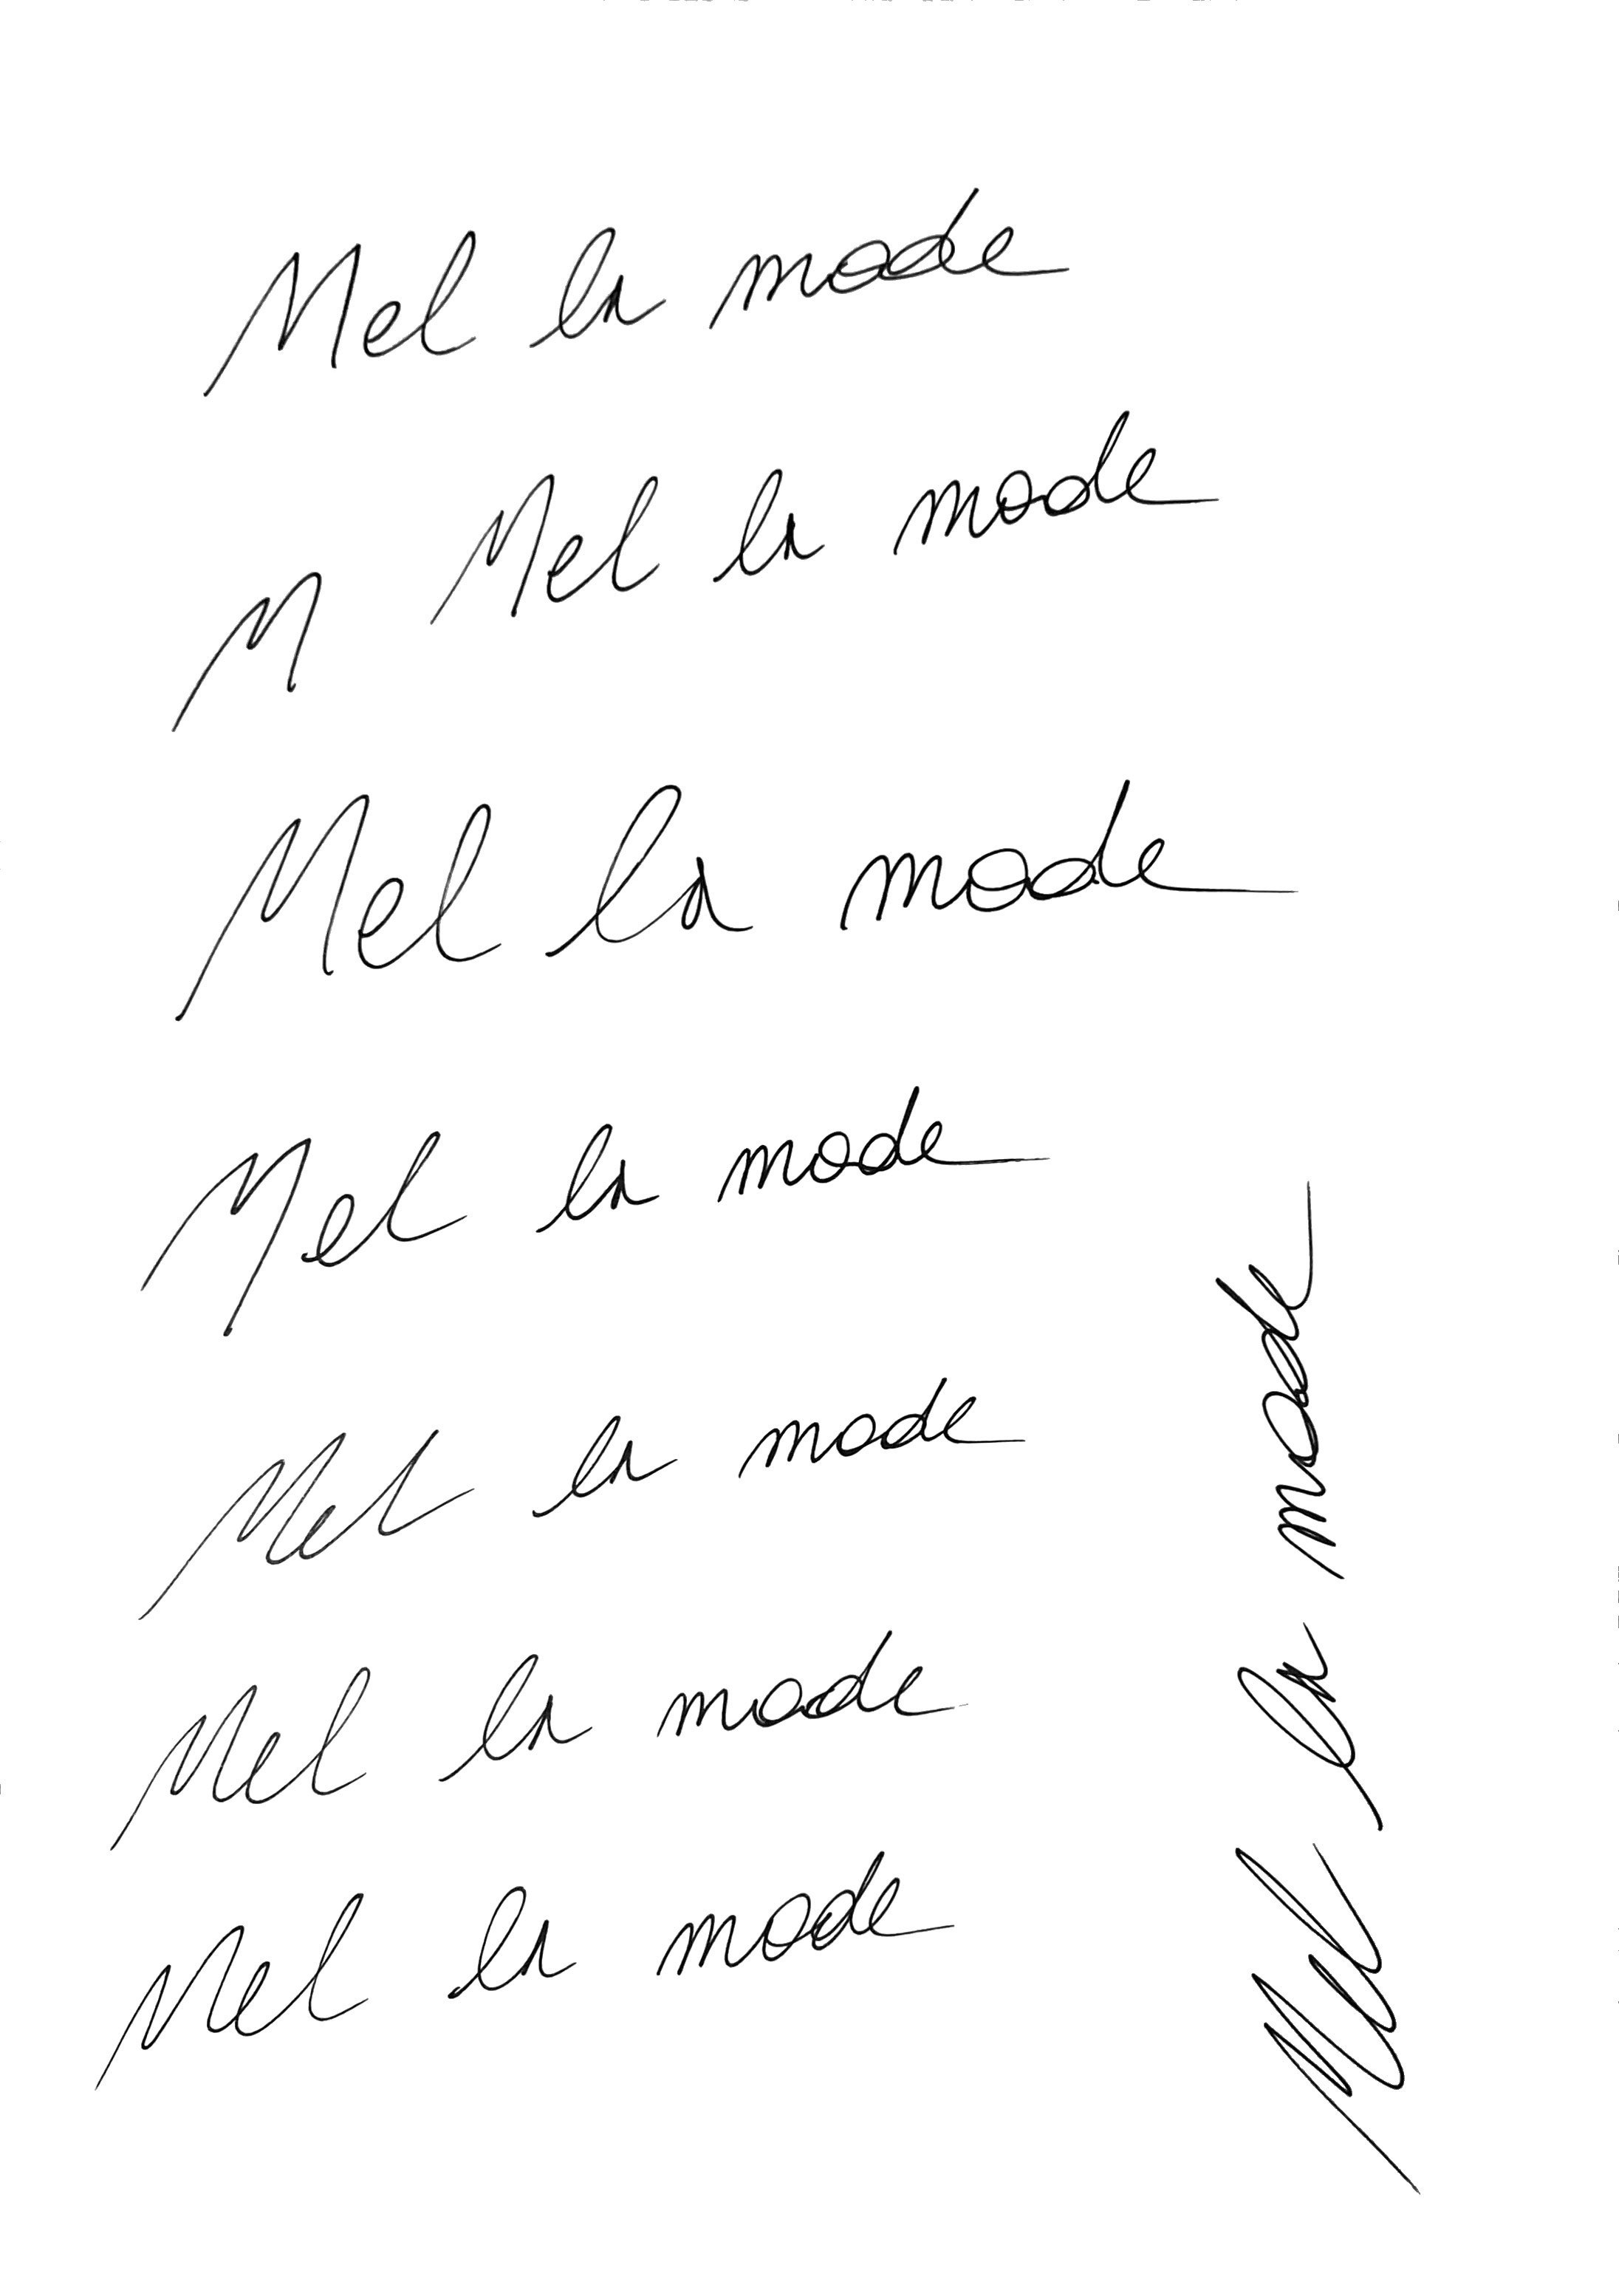 Mel la mode
Mel la mode
M
Mel la mode
Mel la mode
Mel la mode
Mel la mode
Mel la mode
Mel la mode